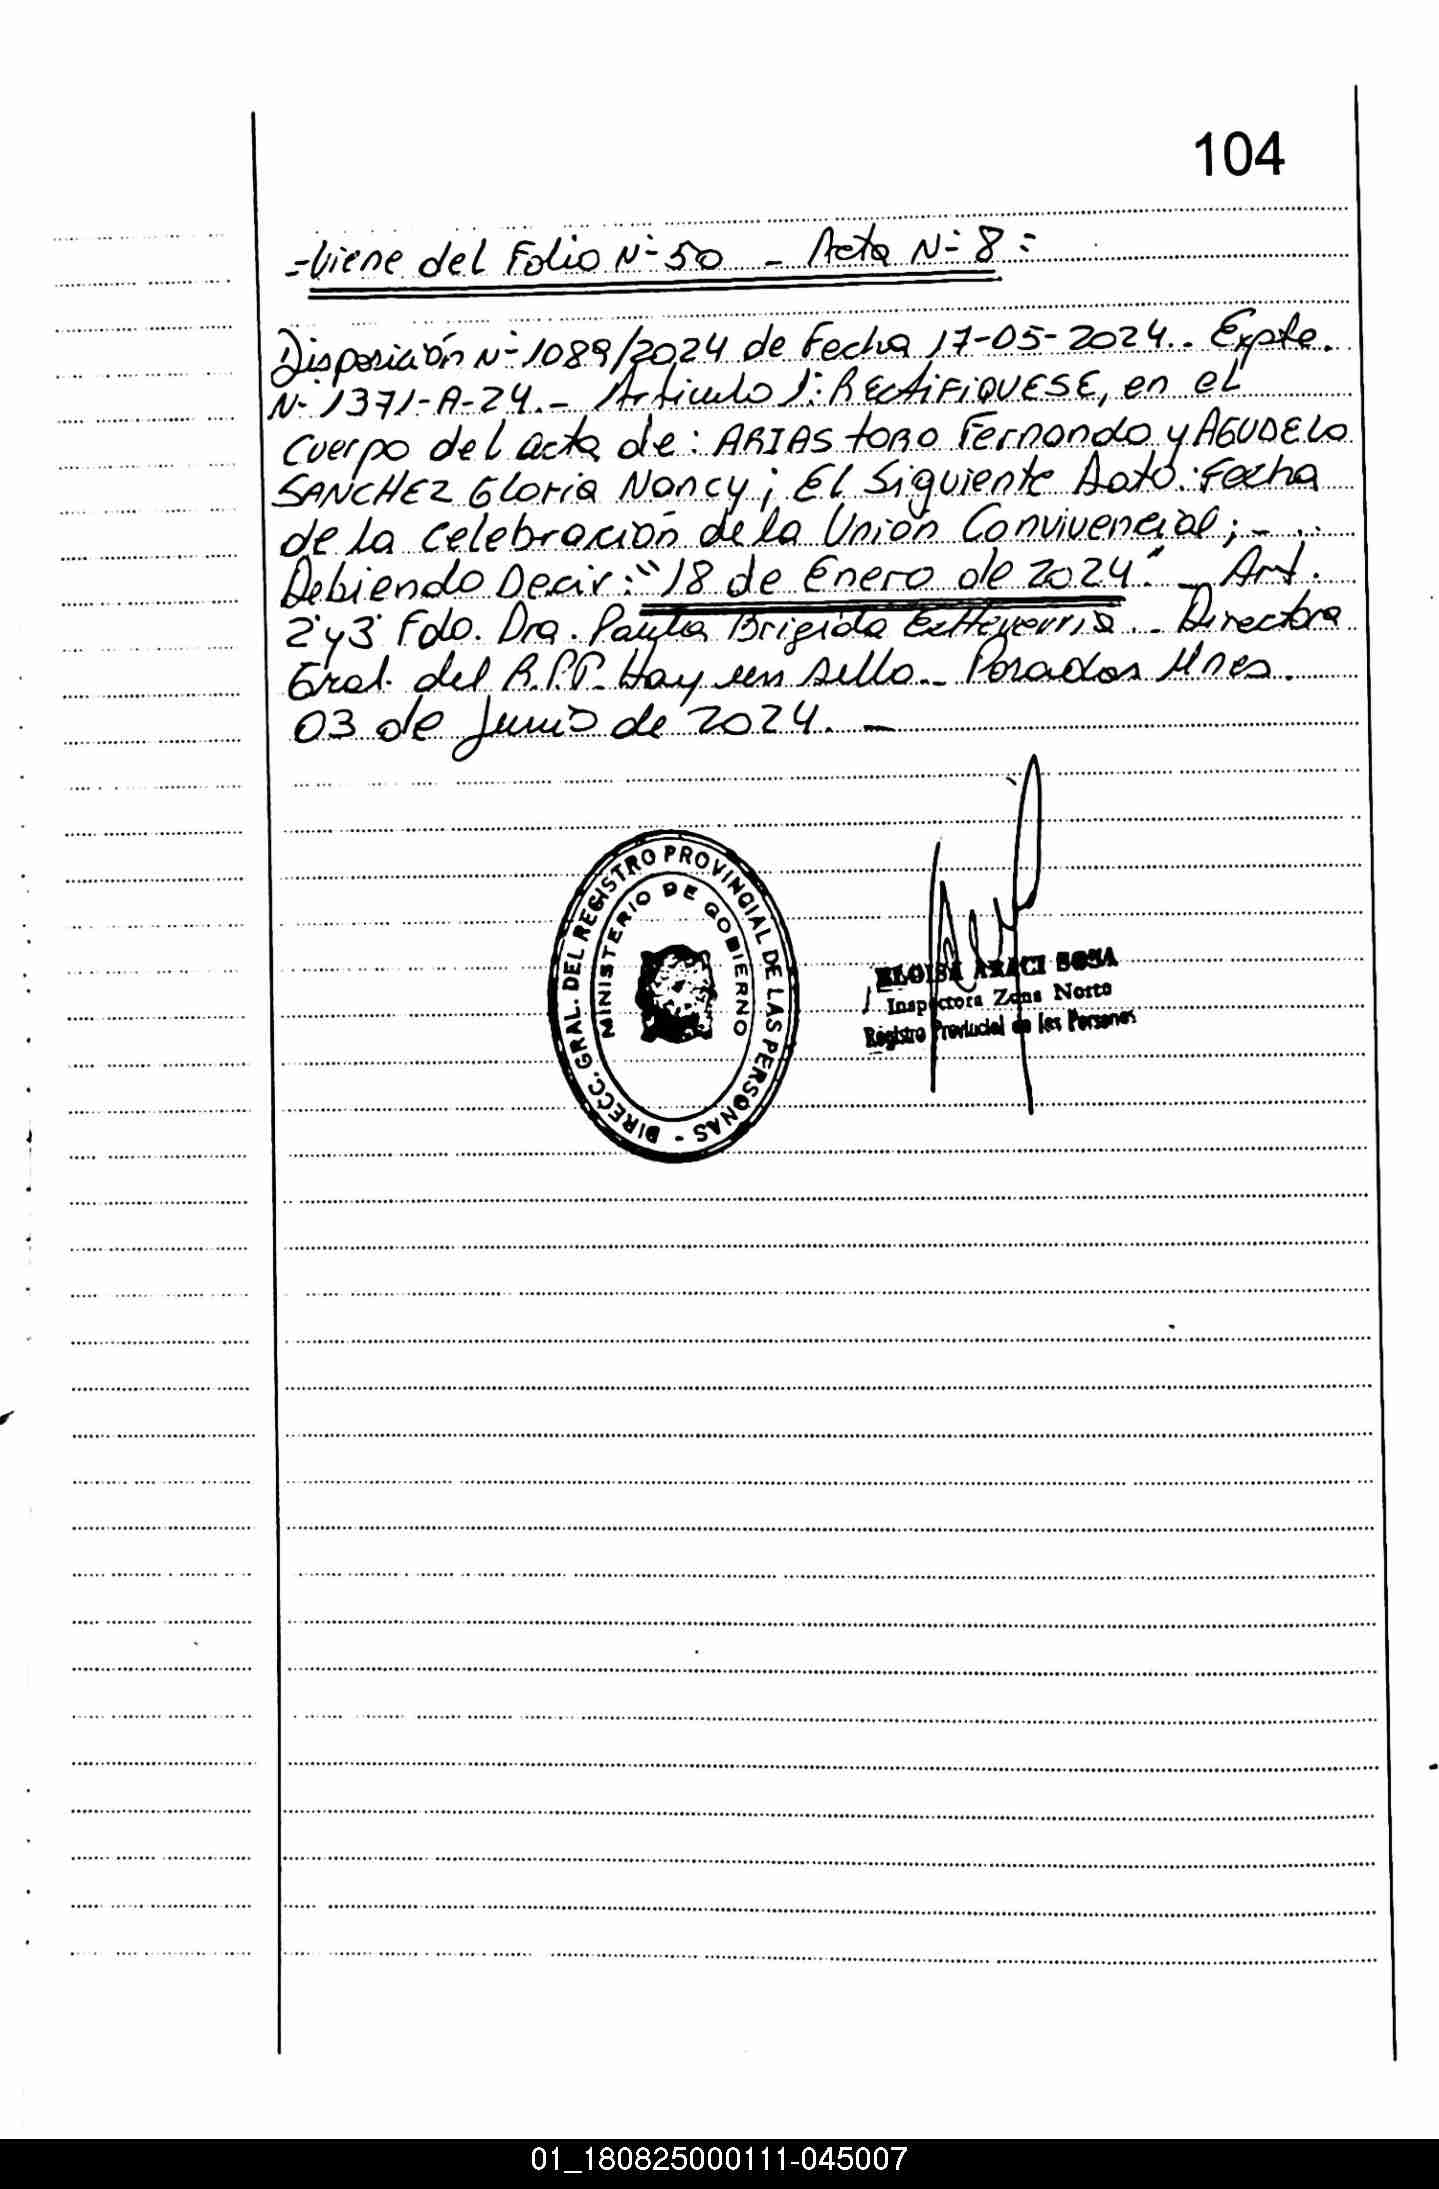 104
=Viene del Folio Nº 50 - Acta Nº 8=
Disposición Nº 1089/2024 de Fecha 17-05-2024.. Expte.
Nº 1371-A-24.- Artículo 1º: RectiFIQUESE, en el
Cuerpo del acta de: ARIAS toRO Fernando y AGUDELO
SANCHEZ Gloria Nancy; El Siguiente Dato: Fecha
de la Celebración de la Unión Convivencial; -
Debiendo Decir: "18 de Enero de 2024" - Art.
2º y 3º Fdo. Dra. Paula Brigida Echeverria. - Directora
Gral. del R.P.P. Hay un sello.- Posadas Mnes.
03 de Junio de 2024. -
DIRECC. GRAL. DEL REGISTRO PROVINCIAL DE LAS PERSONAS -
MINISTERIO DE GOBIERNO
ELOISA ARACI SOSA
Inspectora Zona Norte
Registro Provincial de las Personas
01_180825000111-045007